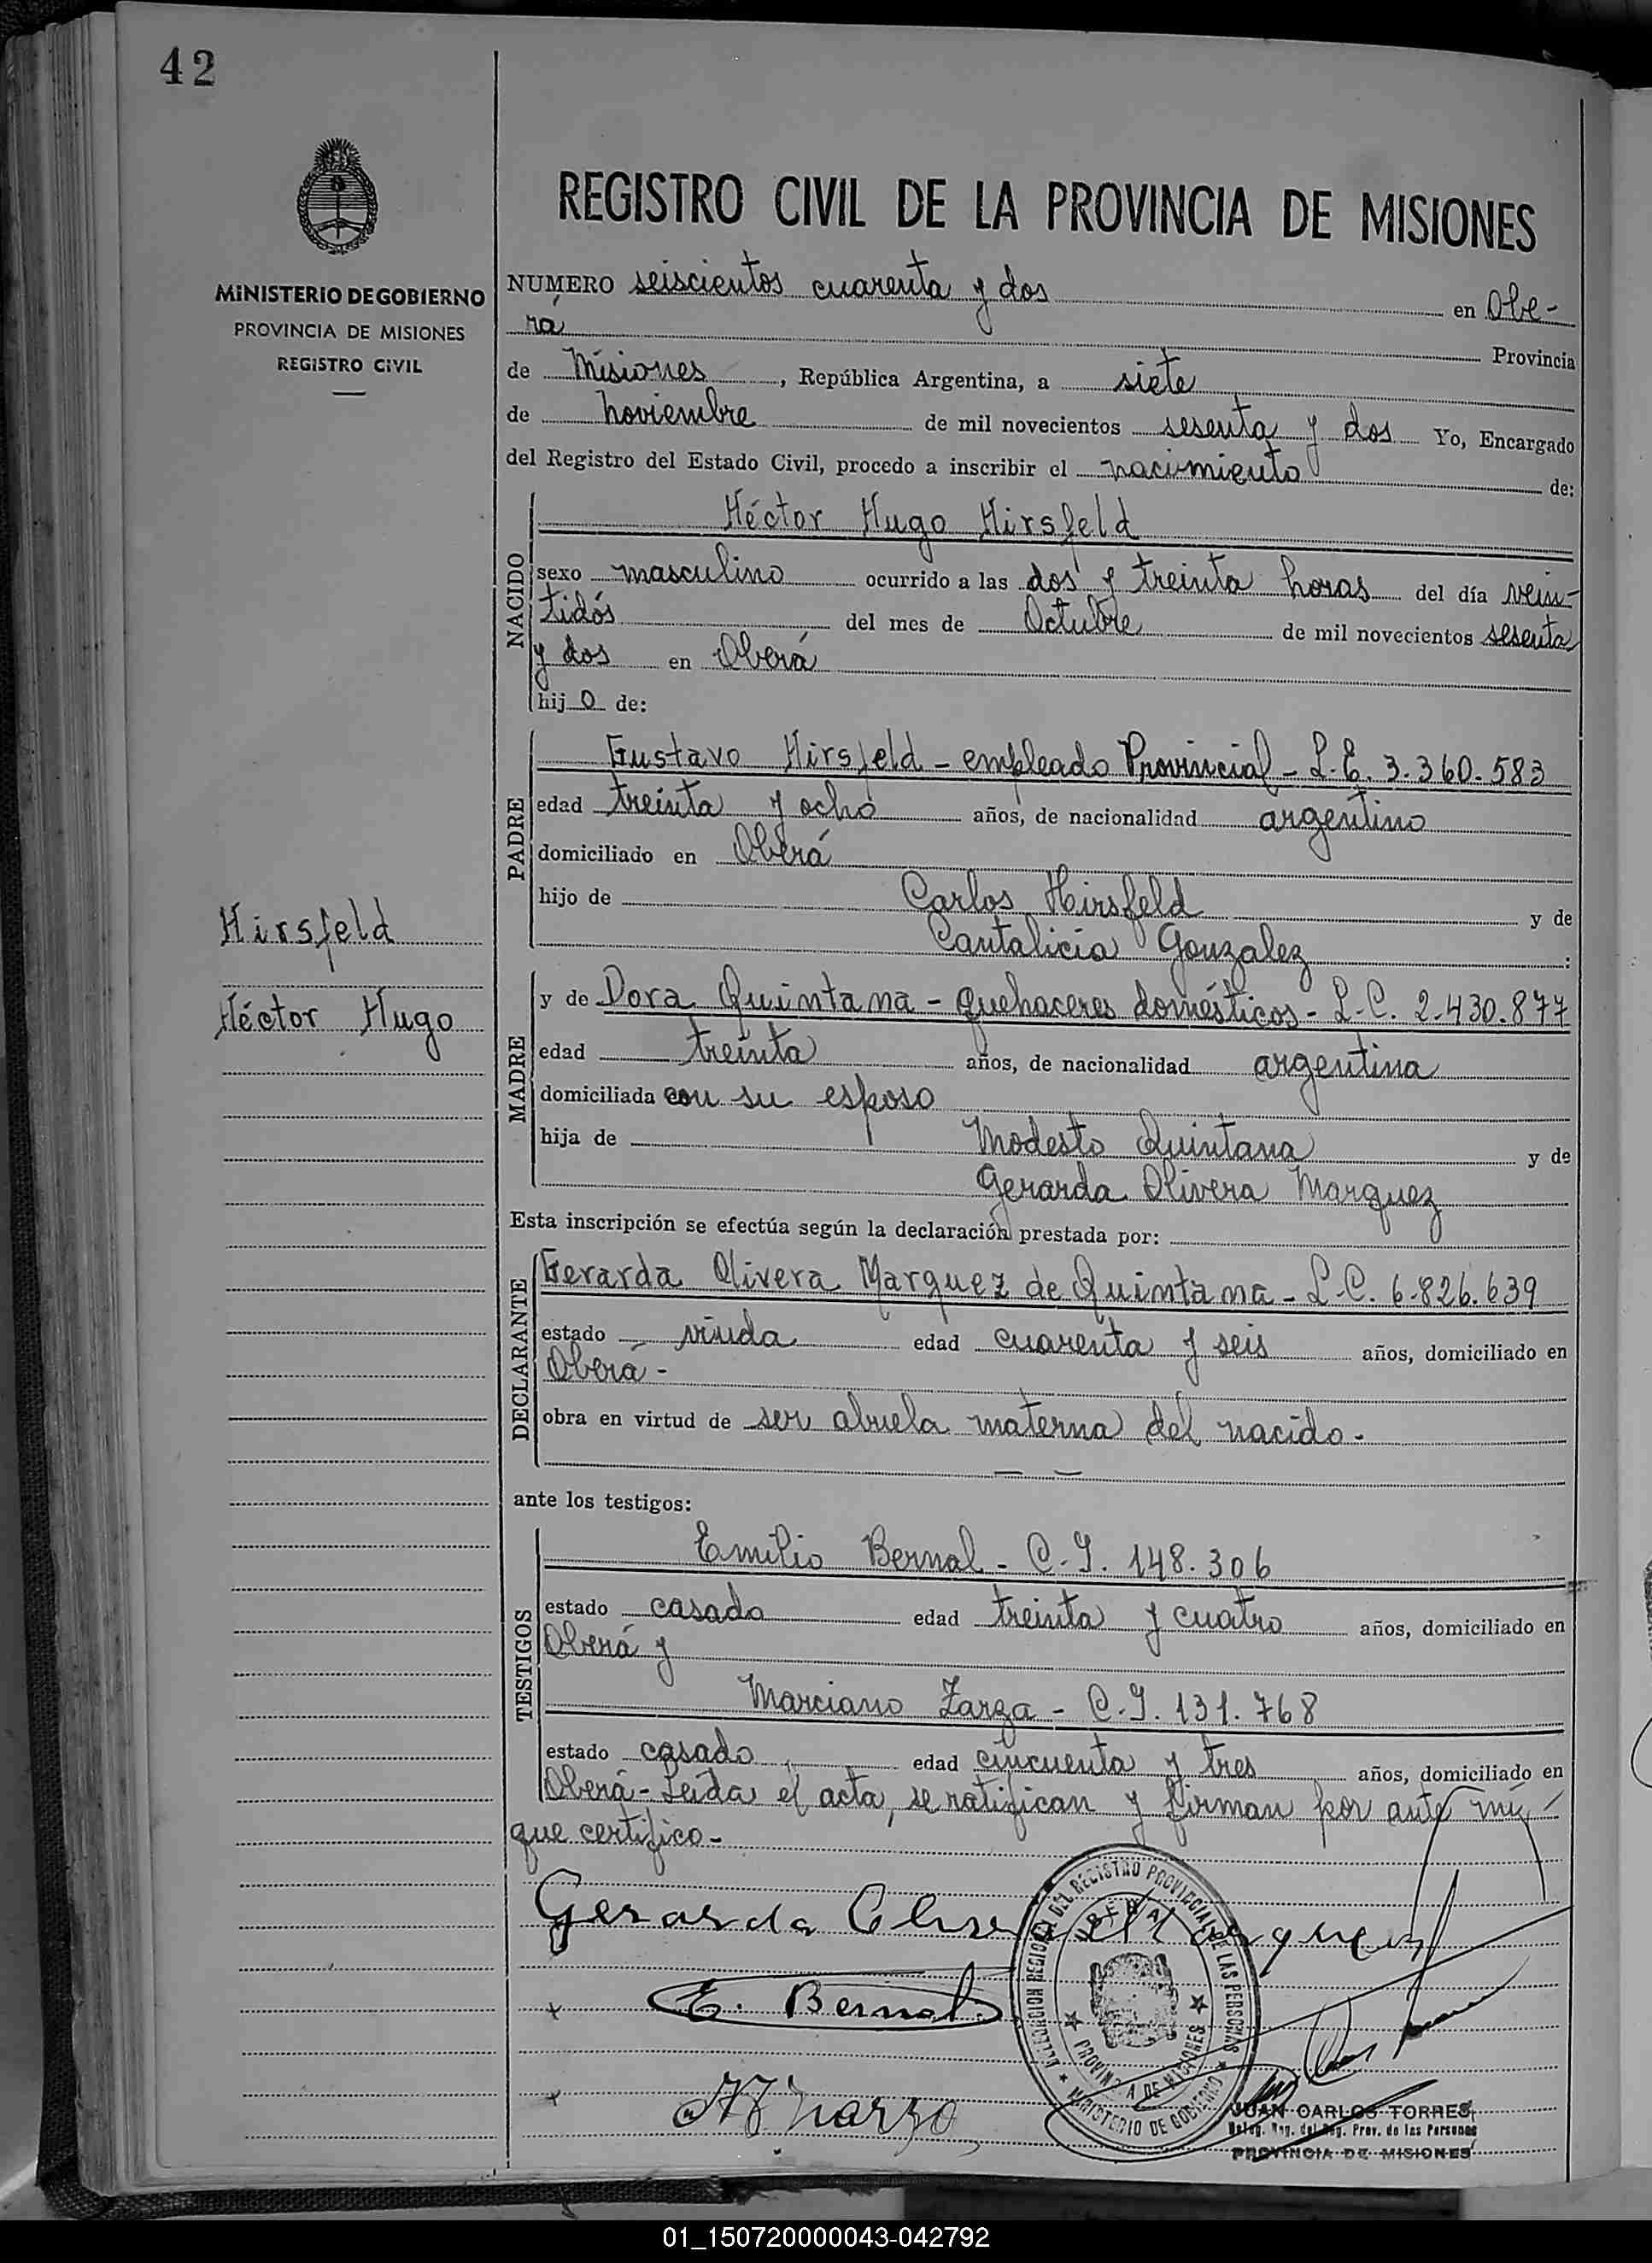 42
MINISTERIO DE GOBIERNO
PROVINCIA DE MISIONES
REGISTRO CIVIL
REGISTRO CIVIL DE LA PROVINCIA DE MISIONES
NUMERO seiscientos cuarenta y dos en Obe-
rá Provincia
de Misiones, República Argentina, a siete
de noviembre de mil novecientos sesenta y dos Yo, Encargado
del Registro del Estado Civil, procedo a inscribir el nacimiento de:
NACIDO
Héctor Hugo Hirsfeld
sexo masculino ocurrido a las dos y treinta horas del día vein-
tidós del mes de Octubre de mil novecientos sesenta
y dos en Oberá
hijo de:
PADRE
Gustavo Hirsfeld - empleado Provincial - L.E. 3.360.583
edad treinta y ocho años, de nacionalidad argentino
domiciliado en Oberá
hijo de Carlos Hirsfeld y de
Cantalicia Gonzalez :
Hirsfeld
Héctor Hugo
MADRE
y de Dora Quintana - Quehaceres domésticos - L.C. 2.430.877
edad treinta años, de nacionalidad argentina
domiciliada con su esposo
hija de Modesto Quintana y de
Gerarda Olivera Marquez
Esta inscripción se efectúa según la declaración prestada por:
DECLARANTE
Gerarda Olivera Marquez de Quintana - L.C. 6.826.639
estado viuda edad cuarenta y seis años, domiciliado en
Oberá -
obra en virtud de ser abuela materna del nacido.-
ante los testigos:
TESTIGOS
Emilio Bernal - C.I. 148.306
estado casado edad treinta y cuatro años, domiciliado en
Oberá y
Marciano Zarza - C.I. 131.768
estado casado edad cincuenta y tres años, domiciliado en
Oberá - Leída el acta, se ratifican y firman por ante mí,
que certifico -
Gerarda Marquez
E. Bernal
DELEGACION REGIONAL DEL REGISTRO PROVINCIAL DE LAS PERSONAS
OBERA
PROVINCIA DE MISIONES
MINISTERIO DE GOBIERNO
JUAN CARLOS TORRES
Deleg. Reg. del Reg. Prov. de las Personas
PROVINCIA DE MISIONES
01_150720000043-042792